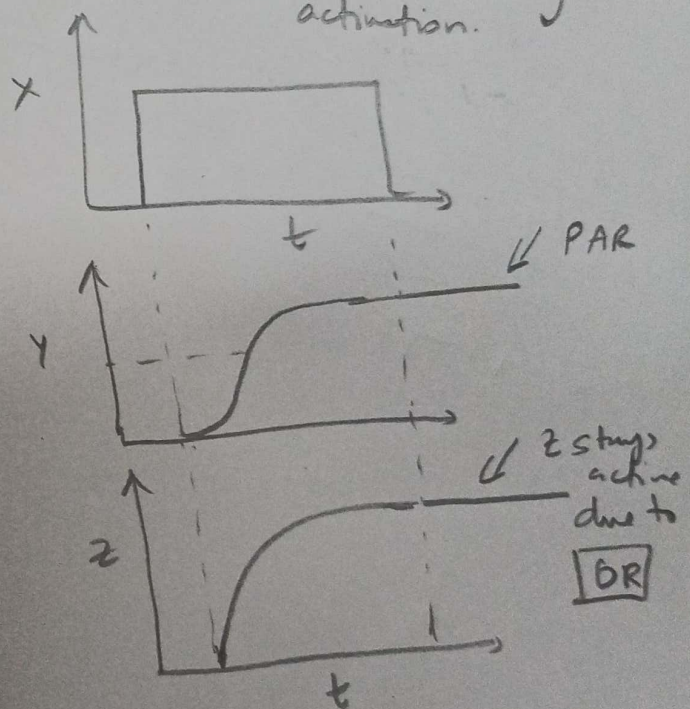 activation.
X
t
PAR
Y
Z stays
active
due to
OR
Z
t